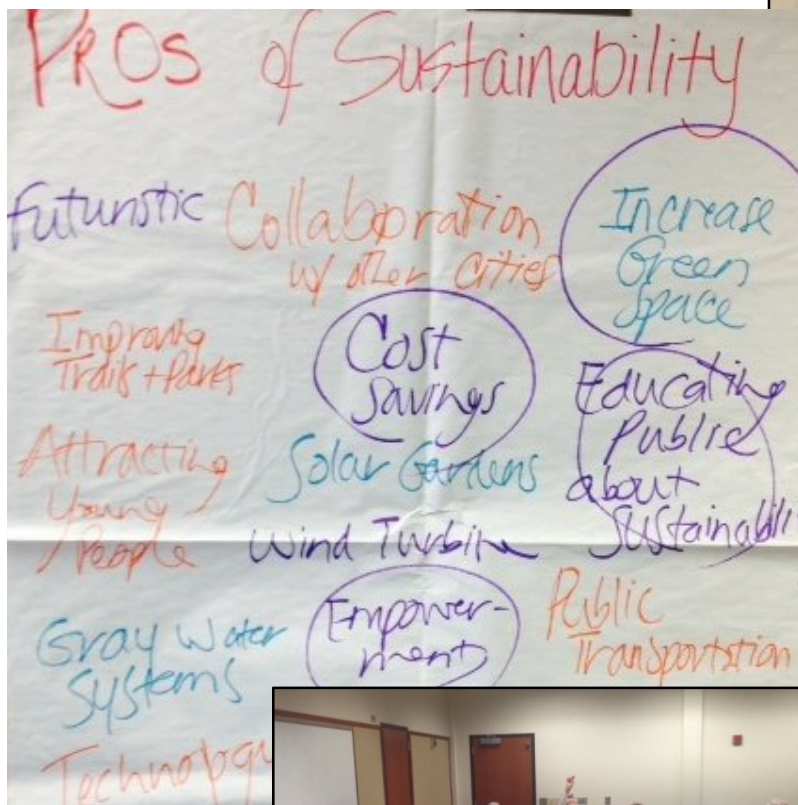 PROs of Sustainability
Futuristic
Collaboration
w/ other Cities
Increase
Green
Space
Improving
Trails + Parks
Cost
Savings
Educating
Public
about
Sustainabili
Attracting
Young
People
Solar Gardens
Wind Turbine
Gray Water
Systems
Empower-
ment
Public
Transportation
Technology